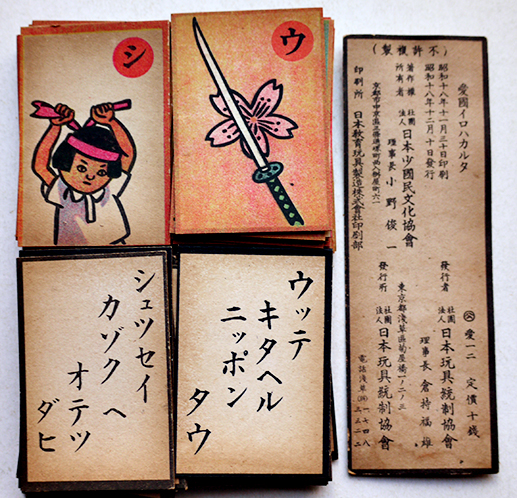 シ
ウ
シュツセイ
カゾクヘ
オテツ
ダヒ
ウッテ
キタヘル
ニッポン
タウ
(不許複製)
愛國イロハカルタ
昭和十八年十一月三十日印刷
昭和十八年十二月十日發行
著作權所有者 社團法人 日本少國民文化協會
理事長 小野俊一
印刷所 日本教育玩具製造株式會社印刷部
㊝ 愛一二 定價十錢
發行者 社團法人 日本玩具統制協會
理事長 倉持福雄
東京都淺草區菊屋橋一ノ二ノ三
發行所 社團法人 日本玩具統制協會